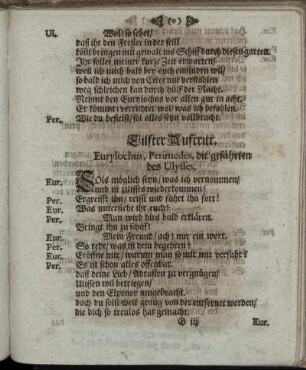 Ul. Wolt so sehet/
daß ihr den Fresser in der still
könt bringen mit gewalt ins Schiff durch diesen garten.
Ihr sollet meiner kurtze Zeit erwarten/
weil ich mich bald bey euch einfinden will/
so bald ich mich von Circe nur verstohlen
weg schleichen kan durch hülf der Nacht.
Nehmt den Eurylochus vor allen gut in acht.
Er kömmt: verrichtet wol was ich befohlen.
Per. Wie du befielst/ sol alles seyn vollbracht.
Eilfter Auftritt.
Eurylochus, Perimedes, die gefährten
des Ulysses.
Eur. Sols möglich seyn/ was ich vernommen/
und zu Ulysses wiederkommen/
Per. Ergreifft ihn/ reisst und führt ihn fort!
Eur. Was untersteht ihr euch?
Per. Man wird dies bald erklären.
Bringt ihn zu schiff!
Eur. Mein Freund/ ach! nur ein wort.
Per. So rede/ was ist dein begehren?
Eur. Eröffne mir/ warum man so mit mir verfährt?
Per. Es ist schon alles offenbar.
daß deine Lieb/ Adrasten zu vergnügen/
Ulissen wil betriegen/
und den Elpenor umgebracht.
doch du solst weit genug von der entfernet werden/
die dich so treulos hat gemacht.
G iij Eur.